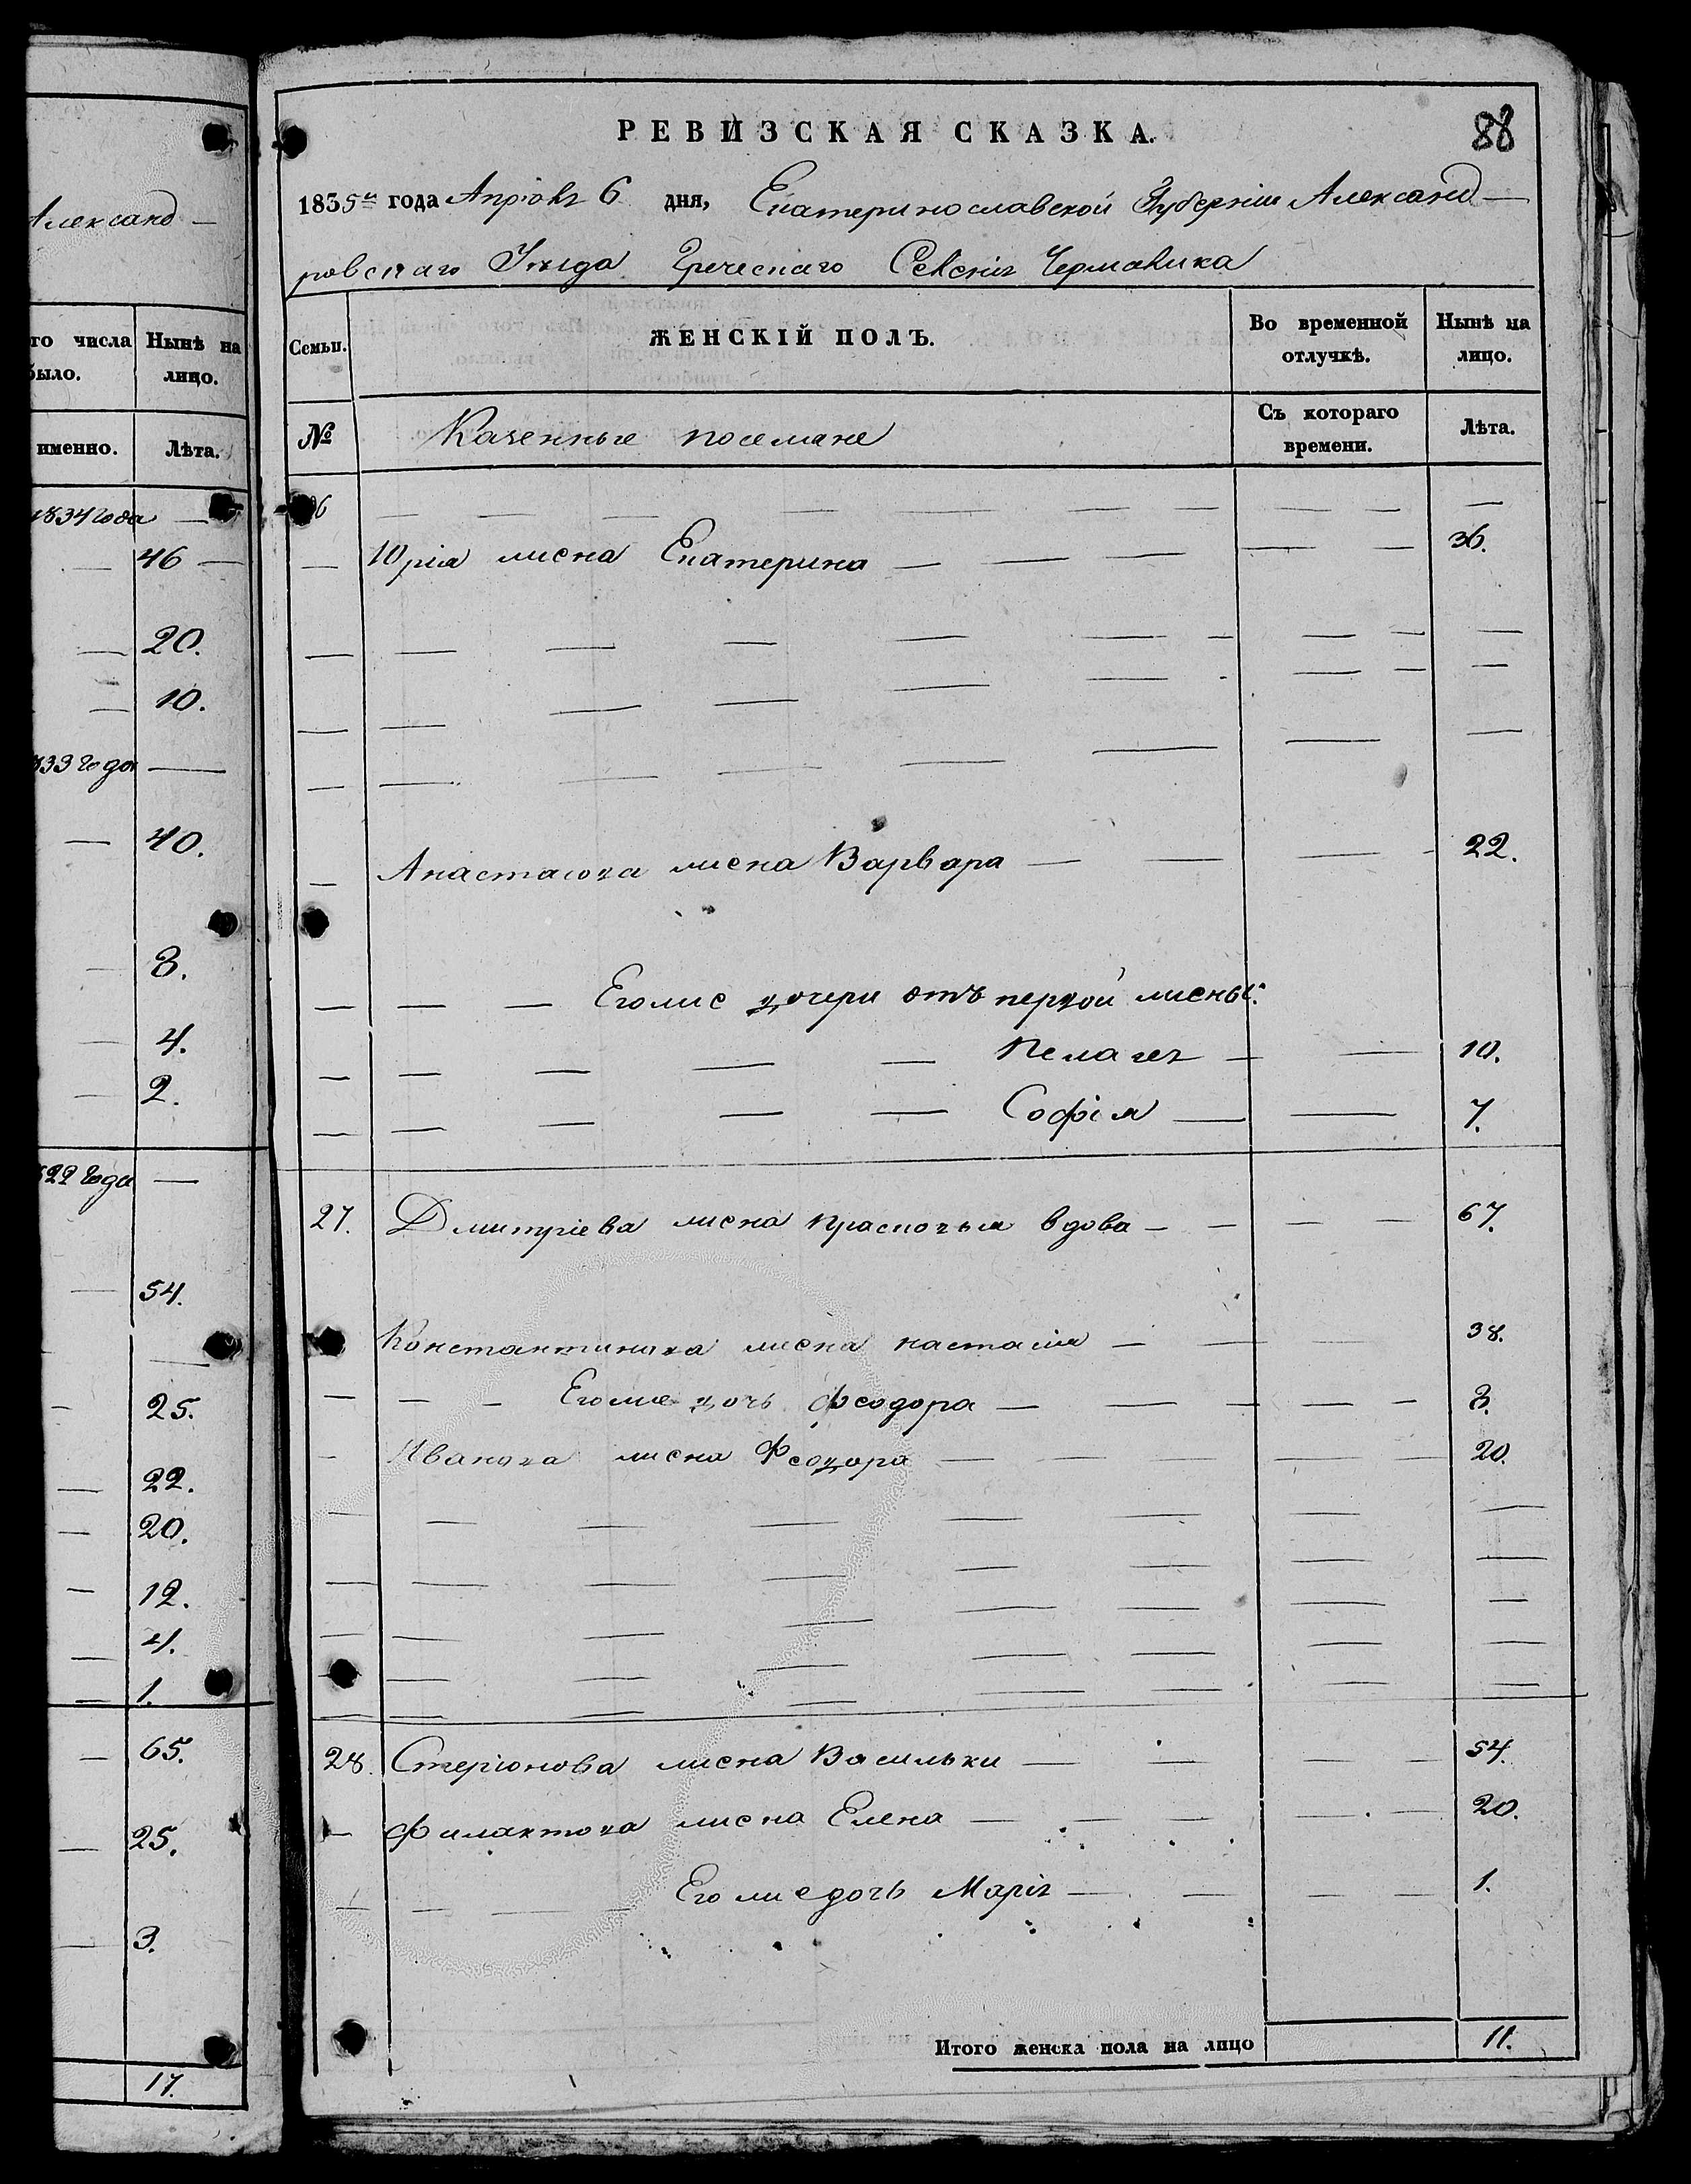 Александ—
го числа
было.
Нынѣ на
лицо.
именно.
Лѣта.
1834 года —
— 46 —
— 20.
— 10.
833 года —
— 40.
— 8.
— 4.
— 2.
822 года —
— 54.
— 25.
— 22.
— 20.
— 12.
— 4.
— 1.
— 65.
— 25.
— 3.
17.
88
РЕВИЗСКАЯ СКАЗКА.
1835го года Апрѣля 6 дня, Екатеринославской Губерніи Александ—
ровскаго Уѣзда Греческаго Селенія Чермалика
Семьи.
ЖЕНСКІЙ ПОЛЪ.
Во временной
отлучкѣ.
Нынѣ на
лицо.
№
Казенные поселяне
Съ котораго
времени.
Лѣта.
26
— Юрія жена Екатерина — 36.
— Анастасова жена Варвара — 22.
Егоже дочери отъ первой жены:
Пелагея — 10.
Софія — 7.
27. Дмитріева жена Прасковья вдова — 67.
Константинова жена настасія — 38.
Егоже дочь Феодора — 3.
Иванова жена Феодора — 20.
28. Стеріонова жена Васильки — 54.
Филактова жена Елена — 20.
Егоже дочь Марія — 1.
Итого женска пола на лицо 11.